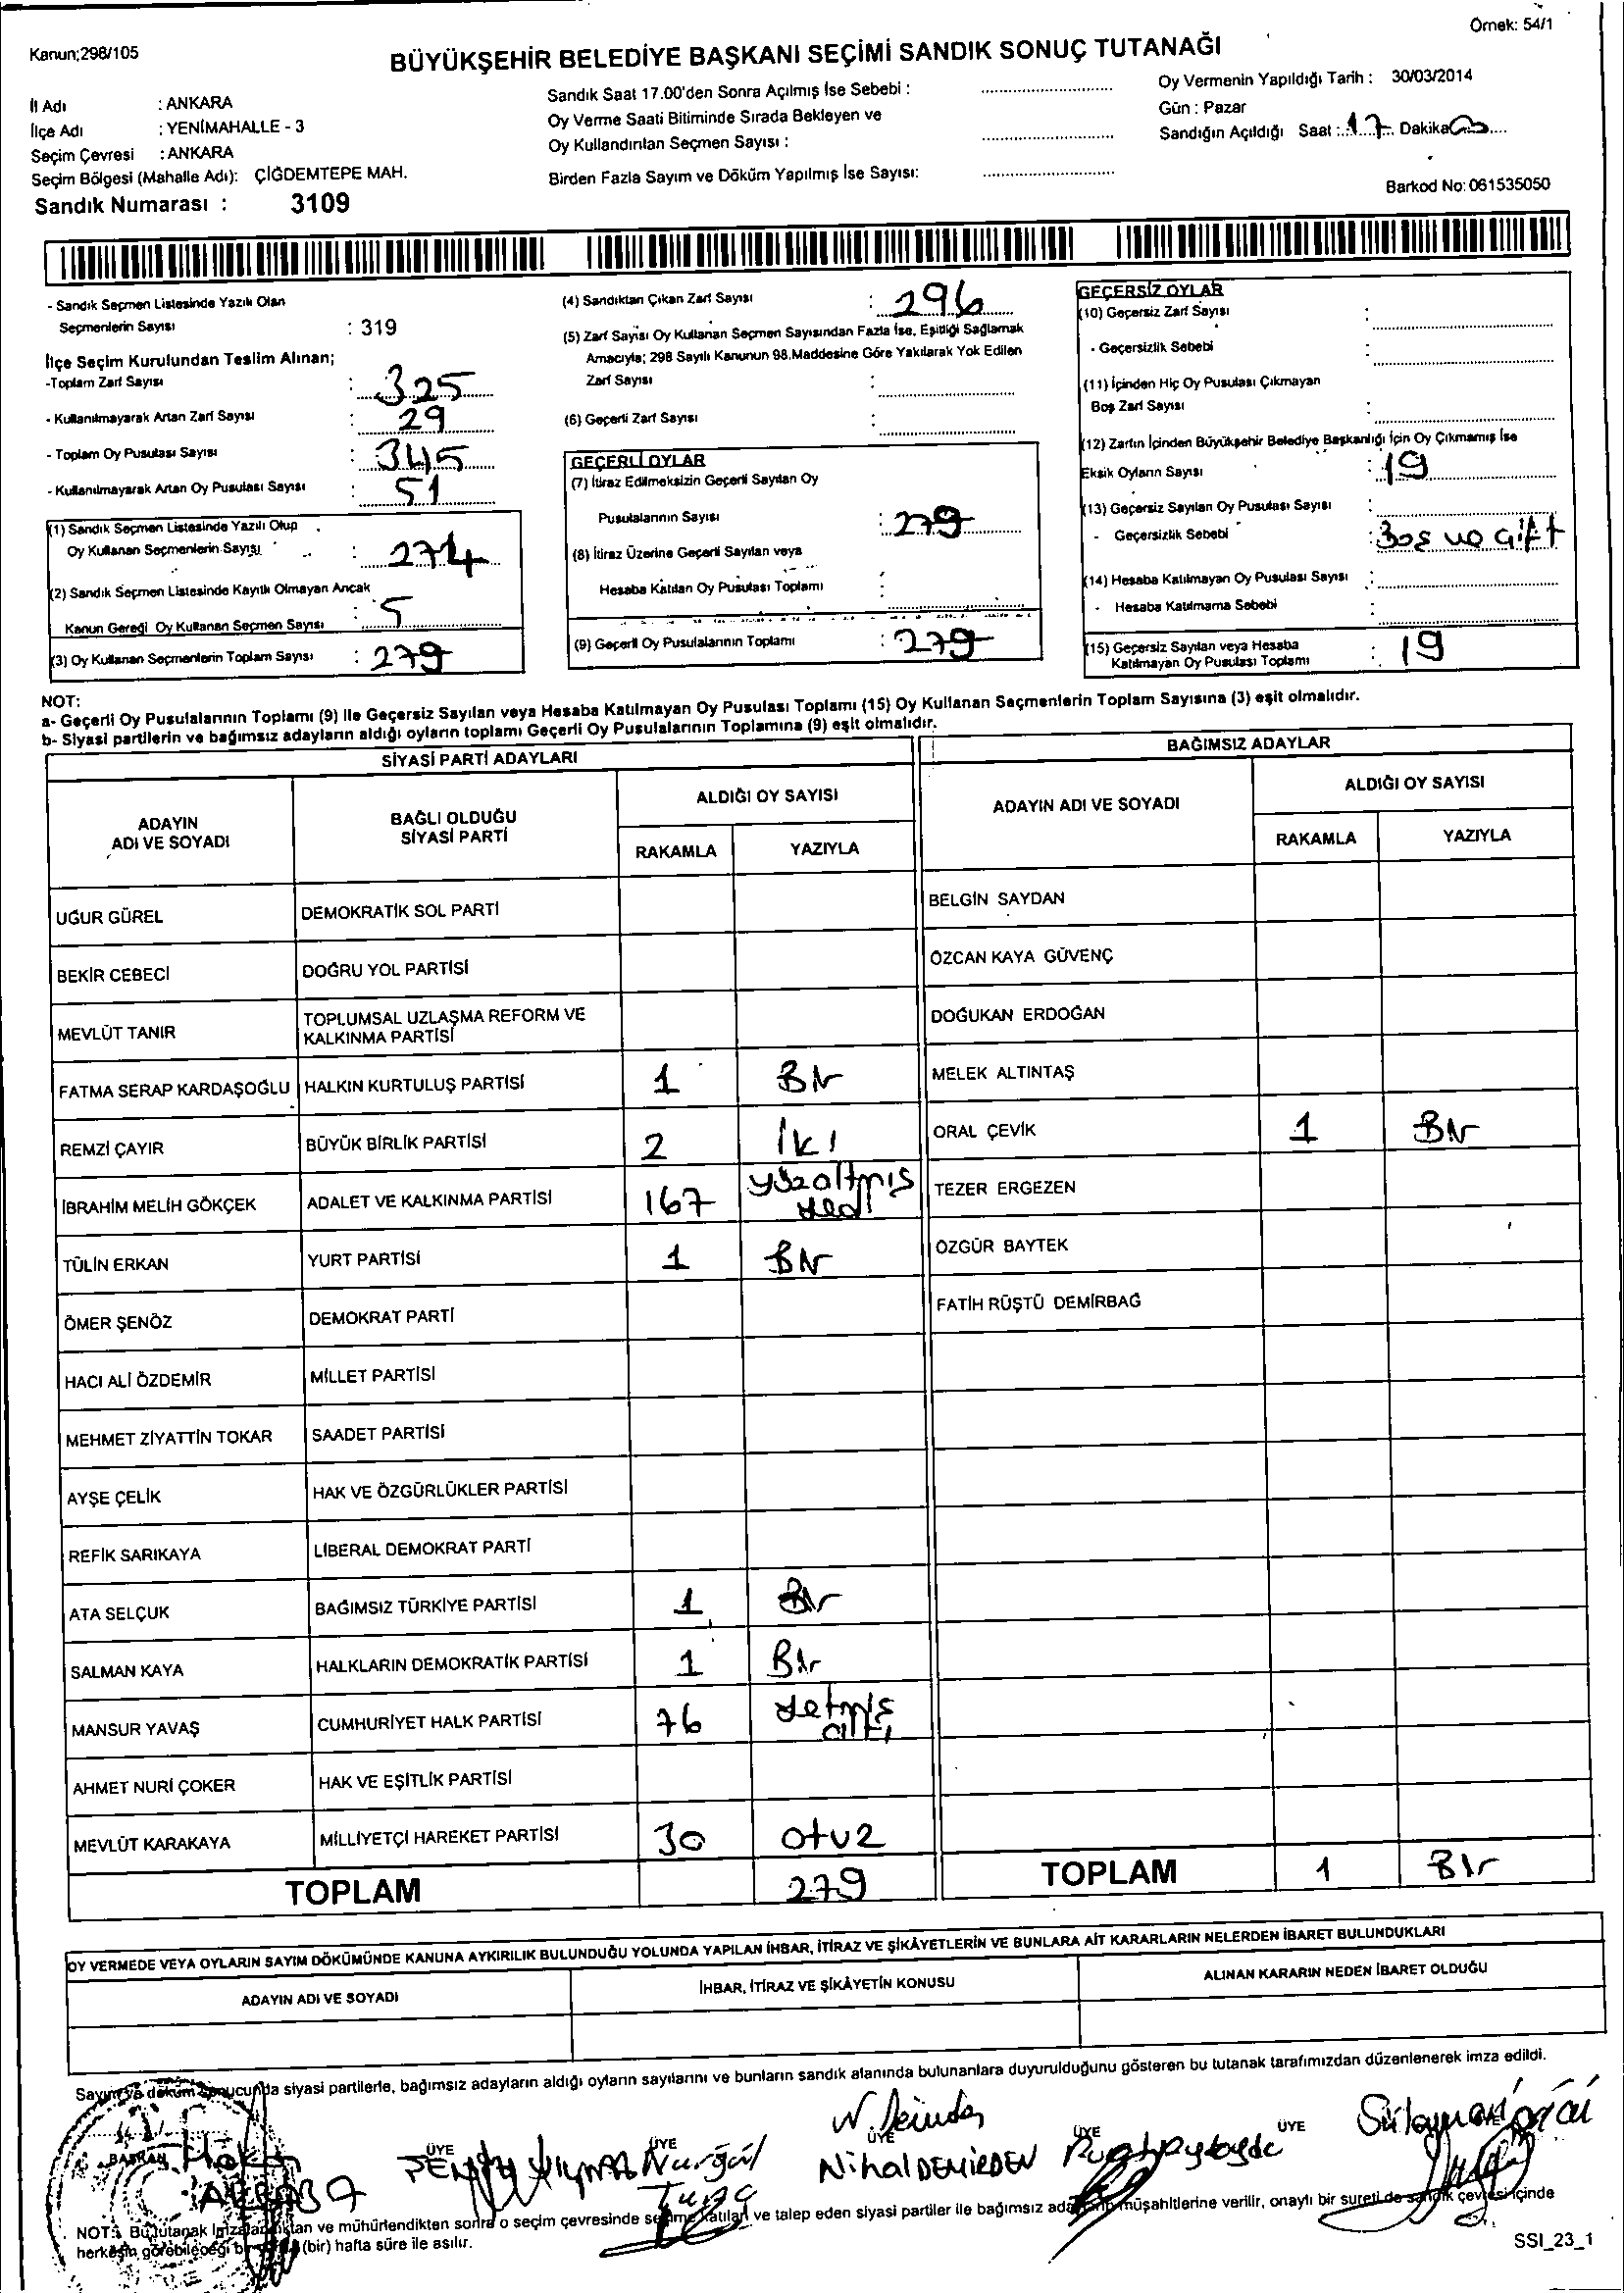 Örnek: 54/1
Kanun;298/105
BÜYÜKŞEHİR BELEDİYE BAŞKANI SEÇİMİ SANDIK SONUÇ TUTANAĞI
İl Adı : ANKARA
İlçe Adı : YENİMAHALLE - 3
Seçim Çevresi : ANKARA
Seçim Bölgesi (Mahalle Adı): ÇİĞDEMTEPE MAH.
Sandık Numarası : 3109
Sandık Saat 17.00'den Sonra Açılmış İse Sebebi :
Oy Verme Saati Bitiminde Sırada Bekleyen ve
Oy Kullandırılan Seçmen Sayısı :
Birden Fazla Sayım ve Döküm Yapılmış İse Sayısı:
Oy Vermenin Yapıldığı Tarih : 30/03/2014
Gün : Pazar
Sandığın Açıldığı Saat : 17 Dakika
Barkod No: 061535050
- Sandık Seçmen Listesinde Yazılı Olan
Seçmenlerin Sayısı : 319
İlçe Seçim Kurulundan Teslim Alınan;
-Toplam Zarf Sayısı : 325
- Kullanılmayarak Artan Zarf Sayısı : 29
- Toplam Oy Pusulası Sayısı : 345
- Kullanılmayarak Artan Oy Pusulası Sayısı : 51
(1) Sandık Seçmen Listesinde Yazılı Olup
Oy Kullanan Seçmenlerin Sayısı : 274
(2) Sandık Seçmen Listesinde Kayıtlı Olmayan Ancak
Kanun Gereği Oy Kullanan Seçmen Sayısı : 5
(3) Oy Kullanan Seçmenlerin Toplam Sayısı : 279
(4) Sandıktan Çıkan Zarf Sayısı : 296
(5) Zarf Sayısı Oy Kullanan Seçmen Sayısından Fazla İse, Eşitliği Sağlamak
Amacıyla; 298 Sayılı Kanunun 98.Maddesine Göre Yakılarak Yok Edilen
Zarf Sayısı :
(6) Geçerli Zarf Sayısı :
GEÇERLİ OYLAR
(7) İtiraz Edilmeksizin Geçerli Sayılan Oy
Pusulalarının Sayısı : 279
(8) İtiraz Üzerine Geçerli Sayılan veya
Hesaba Katılan Oy Pusulası Toplamı :
(9) Geçerli Oy Pusulalarının Toplamı : 279
GEÇERSİZ OYLAR
(10) Geçersiz Zarf Sayısı :
- Geçersizlik Sebebi :
(11) İçinden Hiç Oy Pusulası Çıkmayan
Boş Zarf Sayısı :
(12) Zarfın İçinden Büyükşehir Belediye Başkanlığı İçin Oy Çıkmamış İse
Eksik Oyların Sayısı : 19
(13) Geçersiz Sayılan Oy Pusulası Sayısı :
- Geçersizlik Sebebi : Boş ve Çift
(14) Hesaba Katılmayan Oy Pusulası Sayısı :
- Hesaba Katılmama Sebebi :
(15) Geçersiz Sayılan veya Hesaba
Katılmayan Oy Pusulası Toplamı : 19
NOT:
a- Geçerli Oy Pusulalarının Toplamı (9) İle Geçersiz Sayılan veya Hesaba Katılmayan Oy Pusulası Toplamı (15) Oy Kullanan Seçmenlerin Toplam Sayısına (3) eşit olmalıdır.
b- Siyasi partilerin ve bağımsız adayların aldığı oyların toplamı Geçerli Oy Pusulalarının Toplamına (9) eşit olmalıdır.
SİYASİ PARTİ ADAYLARI
ADAYIN ADI VE SOYADI BAĞLI OLDUĞU SİYASİ PARTİ ALDIĞI OY SAYISI
RAKAMLA YAZIYLA
UĞUR GÜREL DEMOKRATİK SOL PARTİ
BEKİR CEBECİ DOĞRU YOL PARTİSİ
MEVLÜT TANIR TOPLUMSAL UZLAŞMA REFORM VE KALKINMA PARTİSİ
FATMA SERAP KARDAŞOĞLU HALKIN KURTULUŞ PARTİSİ 1 Bir
REMZİ ÇAYIR BÜYÜK BİRLİK PARTİSİ 2 İki
İBRAHİM MELİH GÖKÇEK ADALET VE KALKINMA PARTİSİ 167 yüzaltmış yedi
TÜLİN ERKAN YURT PARTİSİ 1 Bir
ÖMER ŞENÖZ DEMOKRAT PARTİ
HACI ALİ ÖZDEMİR MİLLET PARTİSİ
MEHMET ZİYATTİN TOKAR SAADET PARTİSİ
AYŞE ÇELİK HAK VE ÖZGÜRLÜKLER PARTİSİ
REFİK SARIKAYA LİBERAL DEMOKRAT PARTİ
ATA SELÇUK BAĞIMSIZ TÜRKİYE PARTİSİ 1 Bir
SALMAN KAYA HALKLARIN DEMOKRATİK PARTİSİ 1 Bir
MANSUR YAVAŞ CUMHURİYET HALK PARTİSİ 76 yetmiş altı
AHMET NURİ ÇOKER HAK VE EŞİTLİK PARTİSİ
MEVLÜT KARAKAYA MİLLİYETÇİ HAREKET PARTİSİ 30 otuz
TOPLAM 279
BAĞIMSIZ ADAYLAR
ADAYIN ADI VE SOYADI ALDIĞI OY SAYISI
RAKAMLA YAZIYLA
BELGİN SAYDAN
ÖZCAN KAYA GÜVENÇ
DOĞUKAN ERDOĞAN
MELEK ALTINTAŞ
ORAL ÇEVİK 1 Bir
TEZER ERGEZEN
ÖZGÜR BAYTEK
FATİH RÜŞTÜ DEMİRBAĞ
TOPLAM 1 Bir
OY VERMEDE VEYA OYLARIN SAYIM DÖKÜMÜNDE KANUNA AYKIRILIK BULUNDUĞU YOLUNDA YAPILAN İHBAR, İTİRAZ VE ŞİKÂYETLERİN VE BUNLARA AİT KARARLARIN NELERDEN İBARET BULUNDUKLARI
ADAYIN ADI VE SOYADI İHBAR, İTİRAZ VE ŞİKÂYETİN KONUSU ALINAN KARARIN NEDEN İBARET OLDUĞU
Sayım ve döküm sonucunda siyasi partilerle, bağımsız adayların aldığı oyların sayılarını ve bunların sandık alanında bulunanlara duyurulduğunu gösteren bu tutanak tarafımızdan düzenlenerek imza edildi.
BAŞKAN ÜYE ÜYE ÜYE ÜYE ÜYE
Hakan
Nurgül
Nihal DEMİRDEN
Süleyman
NOT: Bu tutanak imzalandıktan ve mühürlendikten sonra o seçim çevresinde seçime katılan ve talep eden siyasi partiler ile bağımsız adayların müşahitlerine verilir, onaylı bir sureti de sandık çevresi içinde
herkesin görebileceği bir (bir) hafta süre ile asılır.
SSI_23_1